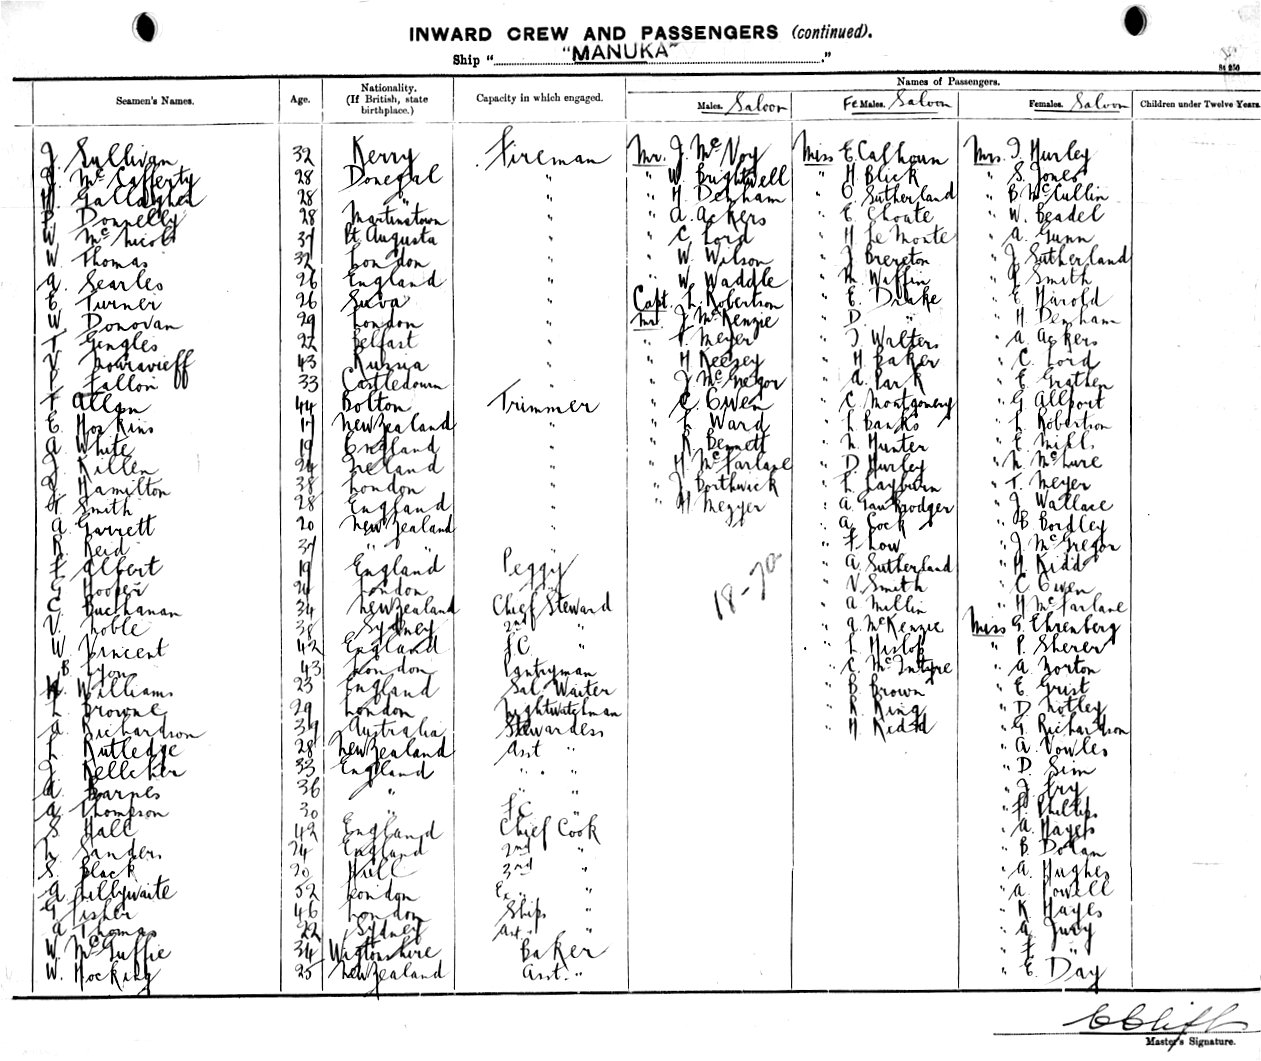 INWARD CREW AND PASSENGERS (continued).
Ship " "MANUKA" ."
Seamen's Names. Age. Nationality. (If British, state birthplace.) Capacity in which engaged. Names of Passengers.
Males. Saloon FeMales. Saloon Females. Saloon Children under Twelve Years.
J. Sullivan 32 Kerry Fireman Mr. J. McVoy Miss E Calhoun Mrs. J Hurley
J. McCafferty 28 Donegal " " W. Brightwell " H Blick " S. Jones
H. Gallagher 28 " " " H. Denham " O. Sutherland " B. McCullin
P. Donnelly 28 Martinstown " " A. Ackers " E. Choate " W. Beadel
W. McNicol 37 Pt. Augusta " " C. Lord " H Le Monte " A. Gunn
W. Thomas 32 London " " W. Wilson " J Brereton " J Sutherland
A. Searles 26 England " " W. Waddle " M Waffin " P Smith
E. Turner 26 Suva " Capt. L. Robertson " E. Drake " E Harold
W. Donovan 29 London " Mr. J. McKenzie " D. " " H Denham
T Gengles 22 Belfast " " T. Meyer " J Walters " A Ackers
V. Mouravieff 43 Russia " " H Keesey " H Baker " C. Lord
P Fallon 33 Castledown " " J. McGregor " A. Park " E Grathen
T Allan 44 Bolton Trimmer " C. Owen " C Montgomery " G Allport
E. Hoskins 17 New Zealand " " L. Ward " L Banks " L. Robertson
A White 19 England " " R Bennett " N. Hunter " E Mills
J. Killen 24 Ireland " " H. McFarlane " D Hurley " N McLure
J Hamilton 38 London " " J Borthwick " L Layburn " T. Meyer
H Smith 28 England " " H Megyer " A. " J. Wallace
A. Garrett 20 New Zealand " " A. Cock " B Bordley
R Reid 37 " " " " F Low " J. McGregor
F Albert 19 England Peggy " A. Sutherland " H. Kidd
G Hooper 24 London " " V. Smith " C Owen
C. Buchanan 34 New Zealand Chief Steward " A Millin " H McFarlane
V. Noble 38 Sydney 2nd " " A. McKenzie Miss G. Ehrenberg
W Vincent 42 England FC " " L Hislop " P. Sherer
B Lyon 43 London Pantryman " C. McIntyre " A Norton
W. Williams 23 England Sal Waiter " B Brown " E Grist
L Browne 29 London Nightwatchman " R King " D Notley
A Richardson 39 Australia Stewardess " H Kidd " G. Richardson
L Rutledge 28 New Zealand Asst " " A. Vowles
J. Kelleher 33 England " " " D. Sim
A Barnes 36 " " " " J. Fry
A Thompson 30 " FC " " F. Phillips
S Hall 42 England Chief Cook " A. Hayes
L. Sanders 24 England 2nd " " B. Dolan
S. Black 20 Hull 3rd " " A. Hughes
A Lillywaite 52 London Ex. " " A Powell
G Fisher 46 London Ships " " K Hayes
A Thomas 22 Sydney Ast. " " A Jury
W. McGuffie 34 Wigtonshire Baker " F "
W. Hocking 25 New Zealand Asst. " " E. Day
18-70
Master's Signature.